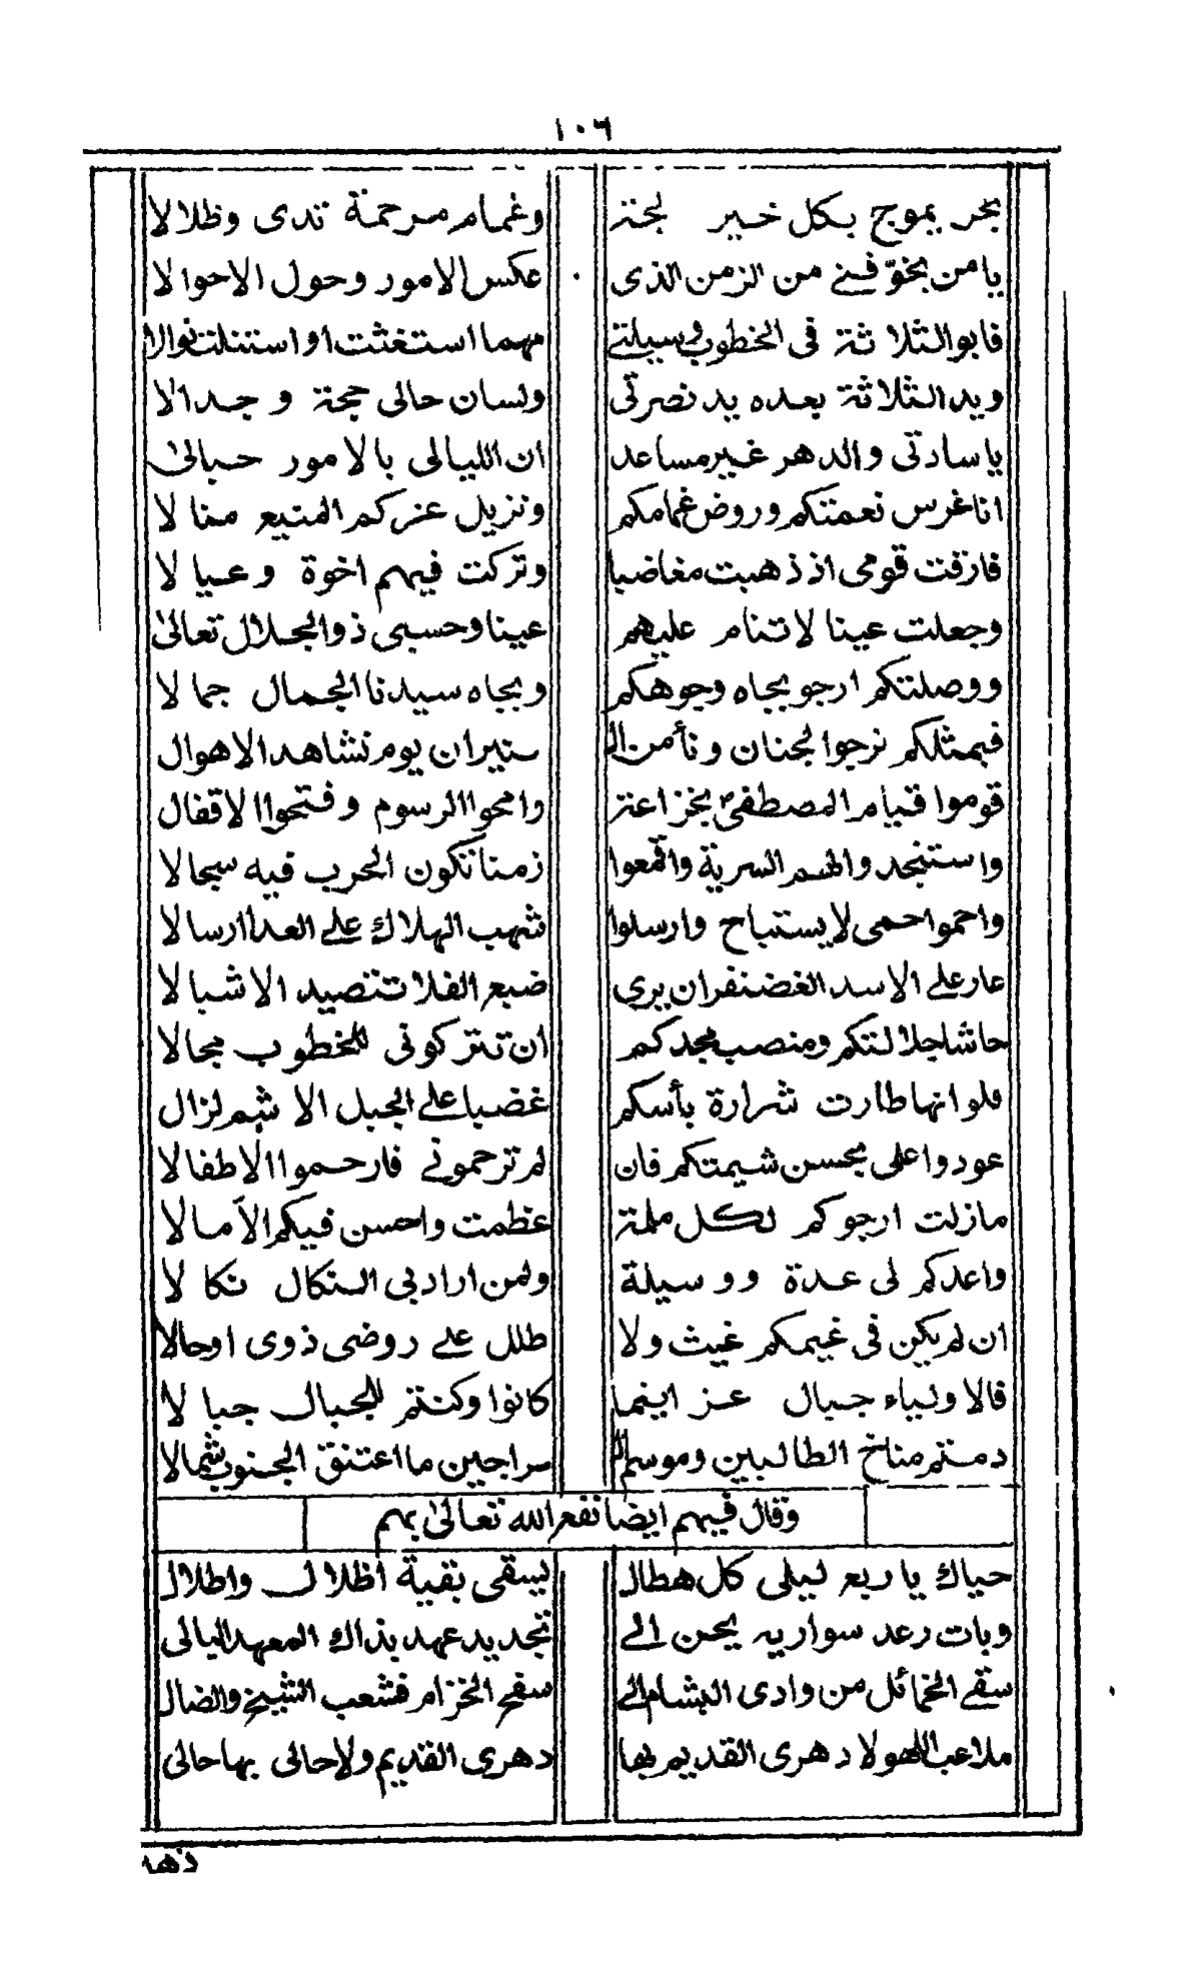 ١٠٦
بحر يموج بكل خير لجته وغمام مرحمة تدى وظلالا
يا من يخوّفنى من الزمن الذى عكس الامور وحول الاحوالا
فابو الثلاثة فى الخطوب وسيلتى مهما استغثت او استنلت نوالا
ويد الثلاثة بعده يد نصرتى ولسان حالى حجة وجدالا
يا سادتى والدهر غير مساعد ان الليالى بالامور حبالىٰ
انا غرس نعمتكم وروض غمامكم ونزيل عزكم المنيع منالا
فارقت قومى اذ ذهبت مغاضبا وتركت فيهم اخوة وعيالا
وجعلت عينا لا تنام عليهم عينا وحسبى ذو الجلال تعالىٰ
ووصلتكم ارجو بجاه وجوهكم وبجاه سيدنا الجمال جمالا
فبمثلكم نرجوا لجنان ونأمن ال سنيران يوم نشاهد الاهوال
قوموا قيام المصطفىٰ بخزاعة وامحوا الرسوم وفتحوا الاقفال
واستنجدوا الهمم السرية واقمعوا زمنا تكون الحرب فيه سجالا
واحموا حمى لا يستباح وارسلوا شهب الهلاك على العدا ارسالا
عار على الاسد الغضنفر ان يرى ضبع الفلا تتصيد الاشبالا
حاشا جلالتكم ومنصب مجدكم ان تتركونى للخطوب مجالا
فلو انها طارت شرارة بأسكم غضبا على الجبل الاشم لزال
عودوا على بحسن شيمتكم فان لم ترحمونى فارحموا الاطفالا
مازلت ارجوكم لكل ملمة عظمت واحسن فيكم الآمالا
واعدكم لى عدة ووسيلة ولمن اراد بى النكال نكالا
ان لم يكن فى غيمكم غيث ولا طلل على روضى ذوى اوحالا
فالاولياء جبال عز اينما كانوا وكنتم للجبال جبالا
دمتم مناخ الطالبين وموسم ال سراجين ما اعتنق الجنوب شمالا
وقال فيهم ايضا نفع الله تعالىٰ بهم
حياك يا ربع ليلى كل هطال يسقى بقية اظلال واطلال
وبات رعد سواريه يحن الى تجديد عهد بذاك المعهد البالى
سقى الخمائل من وادى البشام الى سفح الخزام فشعب الشيخ والضال
ملاعب اللهو لا دهرى القديم بها دهرى القديم ولا حالى بها حالى